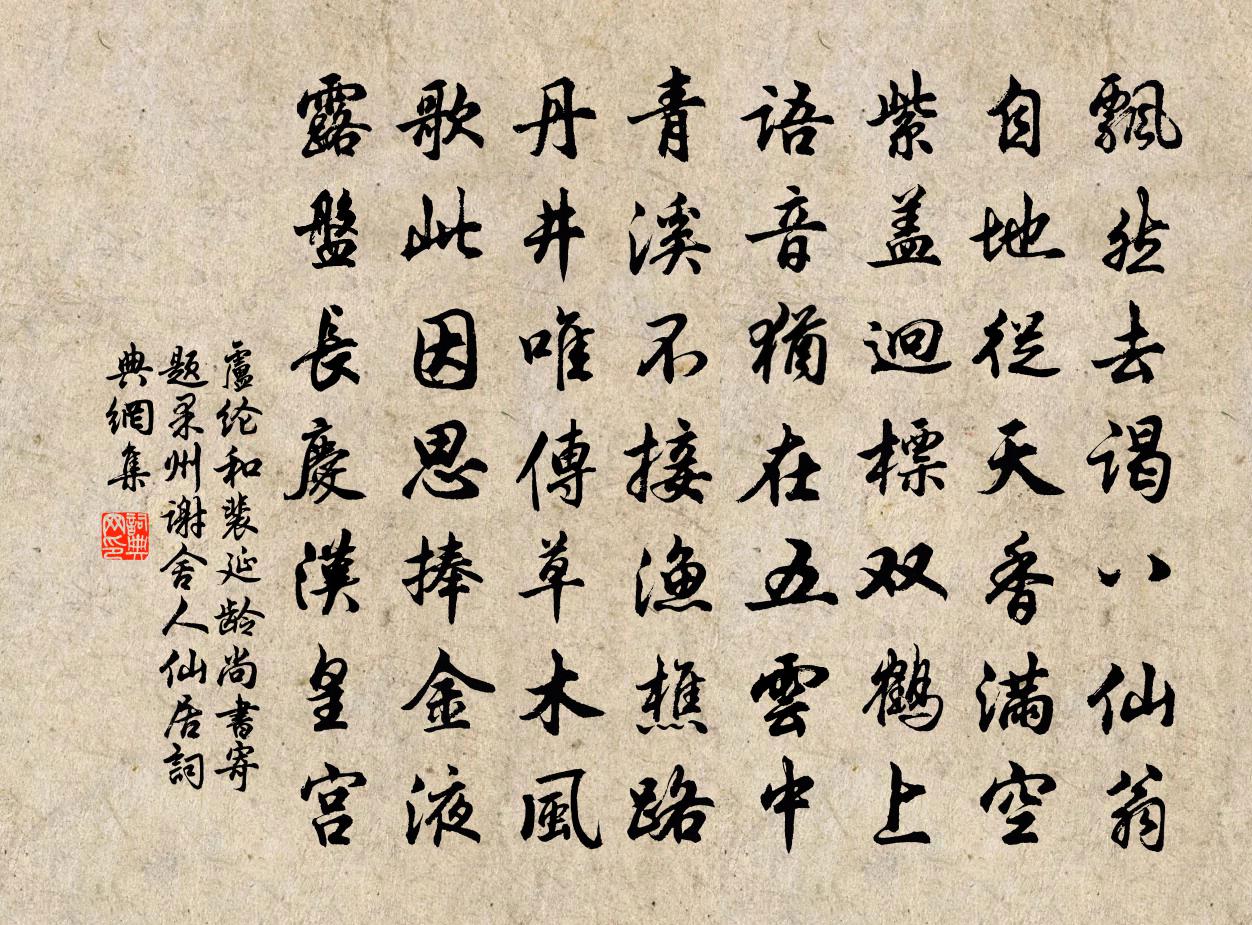 飄然去谒八仙翁
自地從天香满空
紫盖迥標双鶴上
语音猶在五雲中
青溪不接漁樵路
丹井唯傳草木風
歌此因思捧金液
露盤長慶漢皇宫
盧纶和裴延龄尚書寄
题果州谢舍人仙居詞
典網集
詞典网印